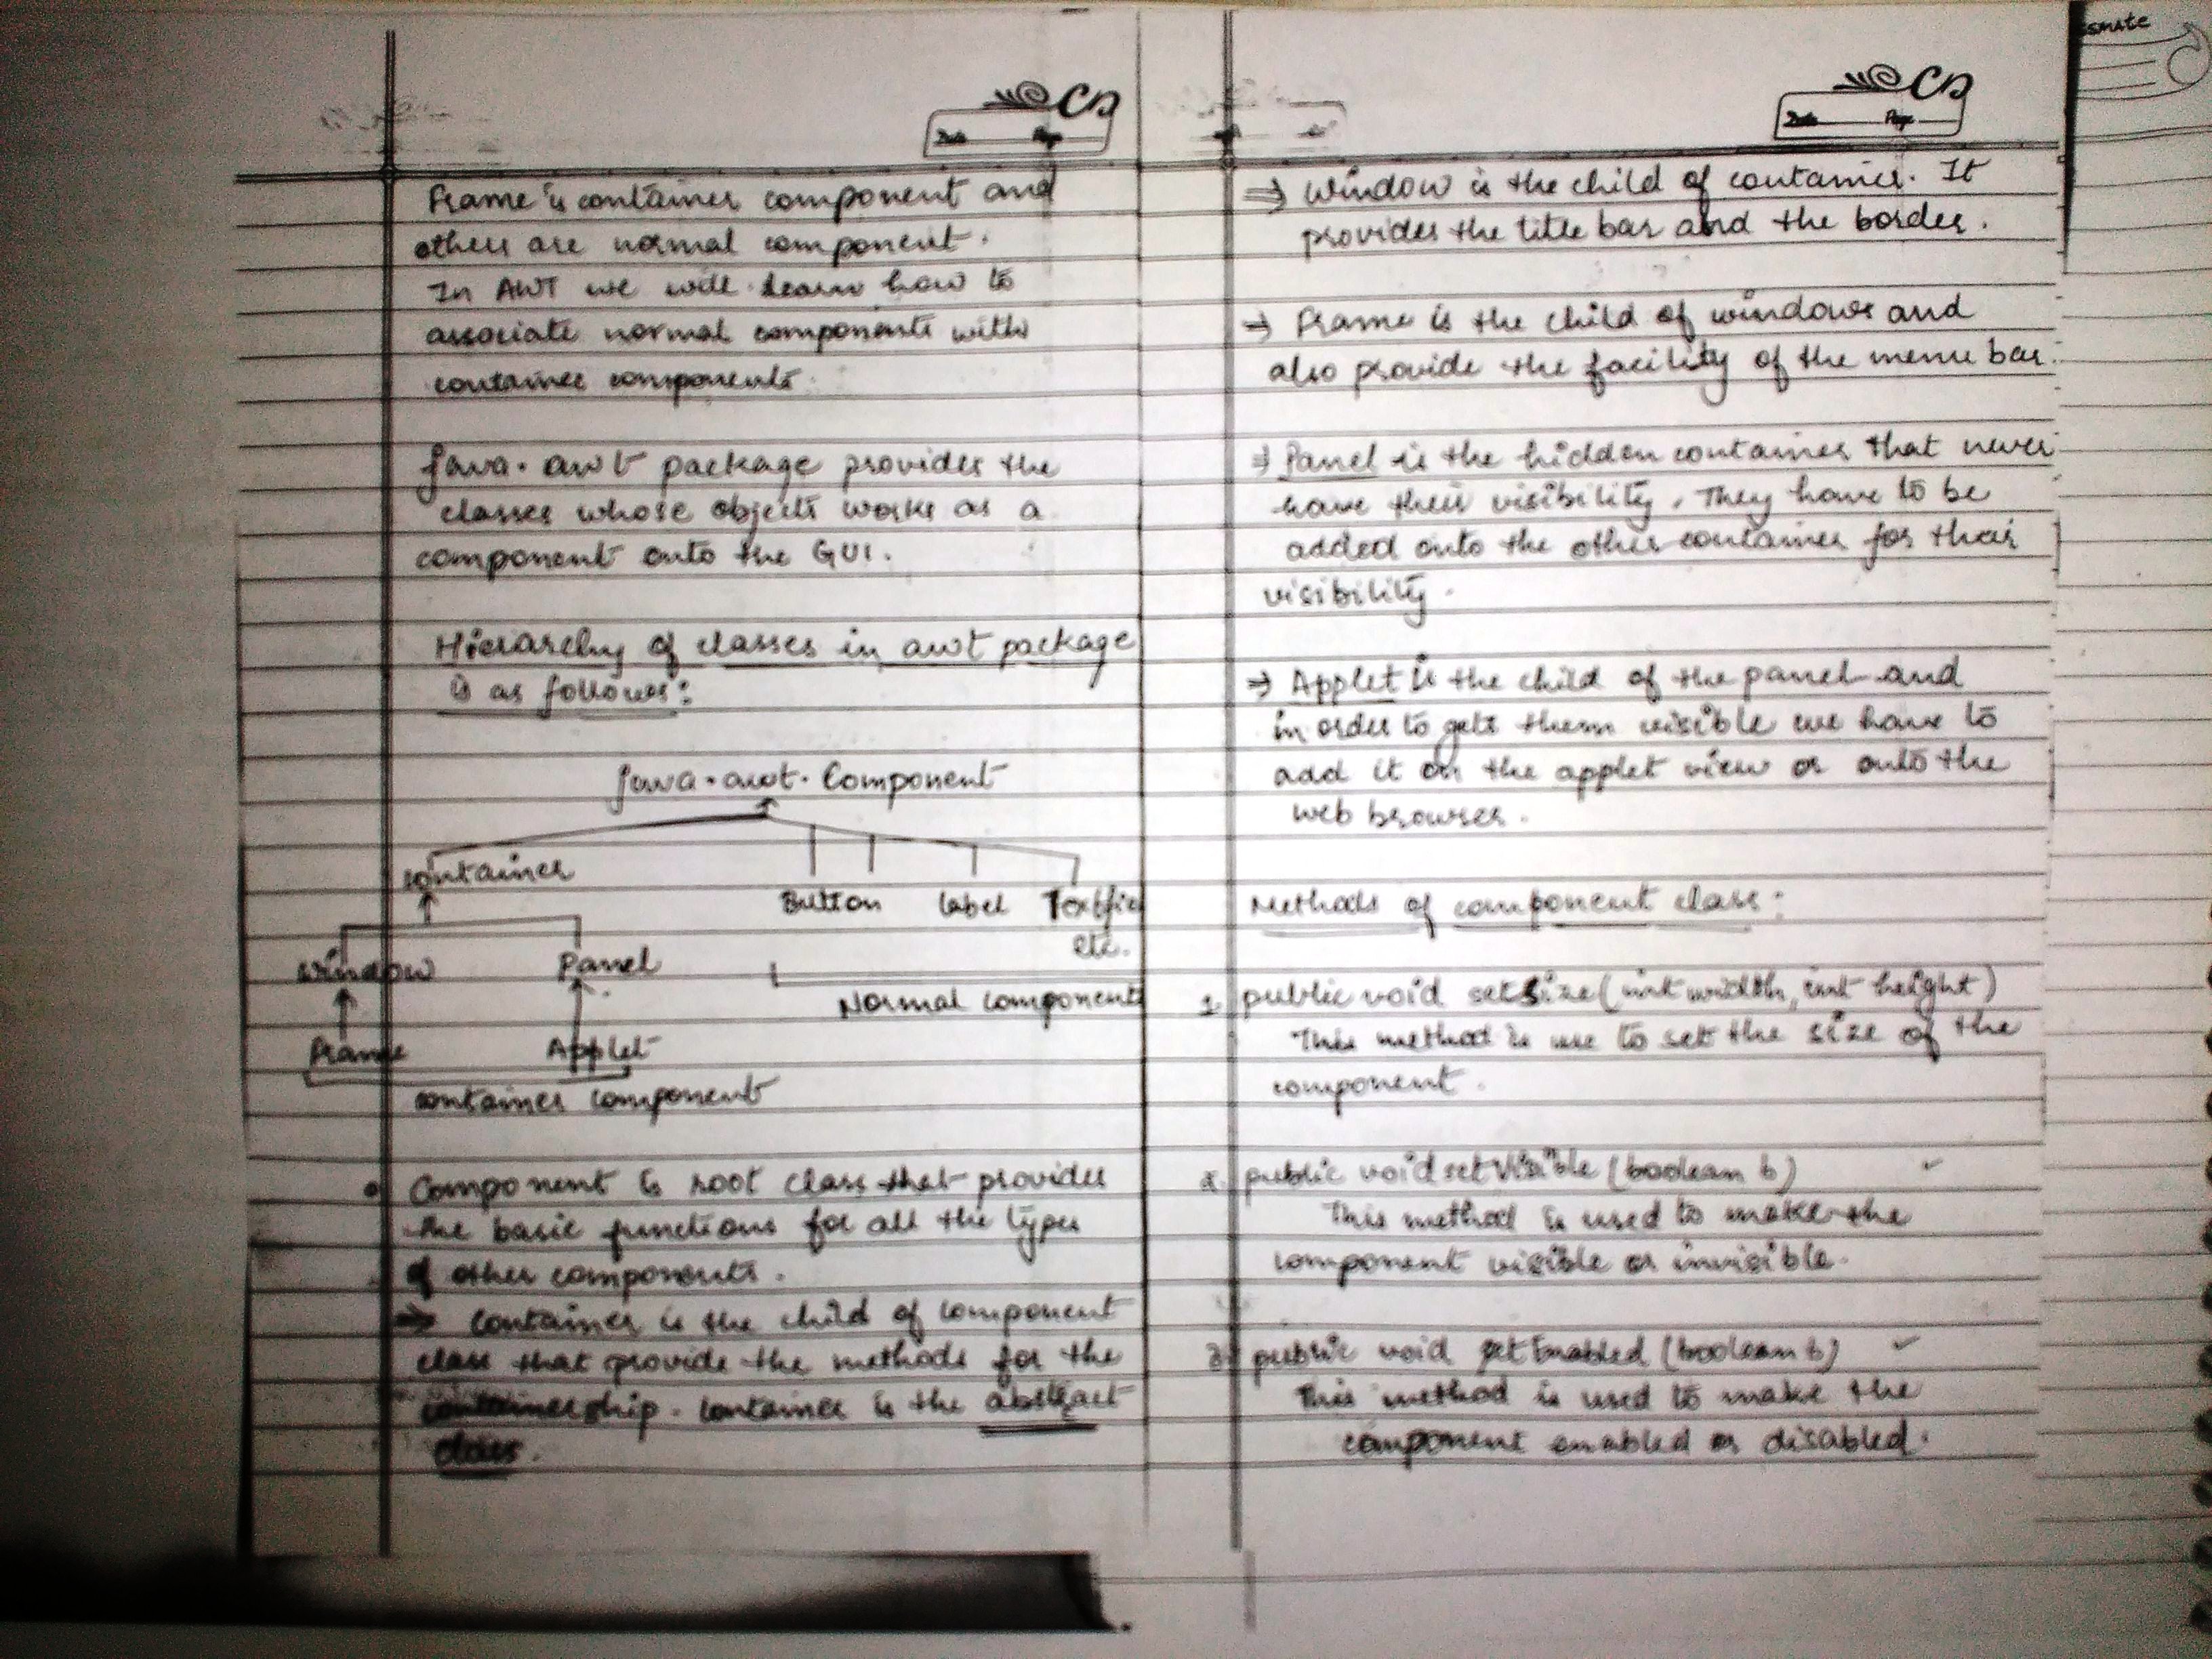 CD
Date Page
Frame is container component and
others are normal component.
In AWT we will learn how to
associate normal components with
container components.
java.awt package provides the
classes whose objects works as a
component onto the GUI.
Hierarchy of classes in awt package
is as follows:
java.awt.Component
Container
Button Label Textfie
etc.
Window Panel
Normal component
Frame Applet
container component
Component is root class that provides
the basic functions for all the types
of other components.
⇒ Container is the child of component
class that provide the methods for the
containership. Container is the abstract
class.
CD
Date Page
⇒ Window is the child of container. It
provides the title bar and the border.
→ Frame is the child of windows and
also provide the facility of the menu bar.
⇒ Panel is the hidden container that never
have their visibility. They have to be
added onto the other container for their
visibility.
⇒ Applet is the child of the panel and
in order to gets them visible we have to
add it on the applet view or onto the
web browser.
Methods of component class:
1. public void setSize(int width, int height)
This method is use to set the size of the
component.
2. public void setVisible (boolean b)
This method is used to make the
component visible or invisible.
3. public void setEnabled (boolean b)
This method is used to make the
component enabled or disabled.